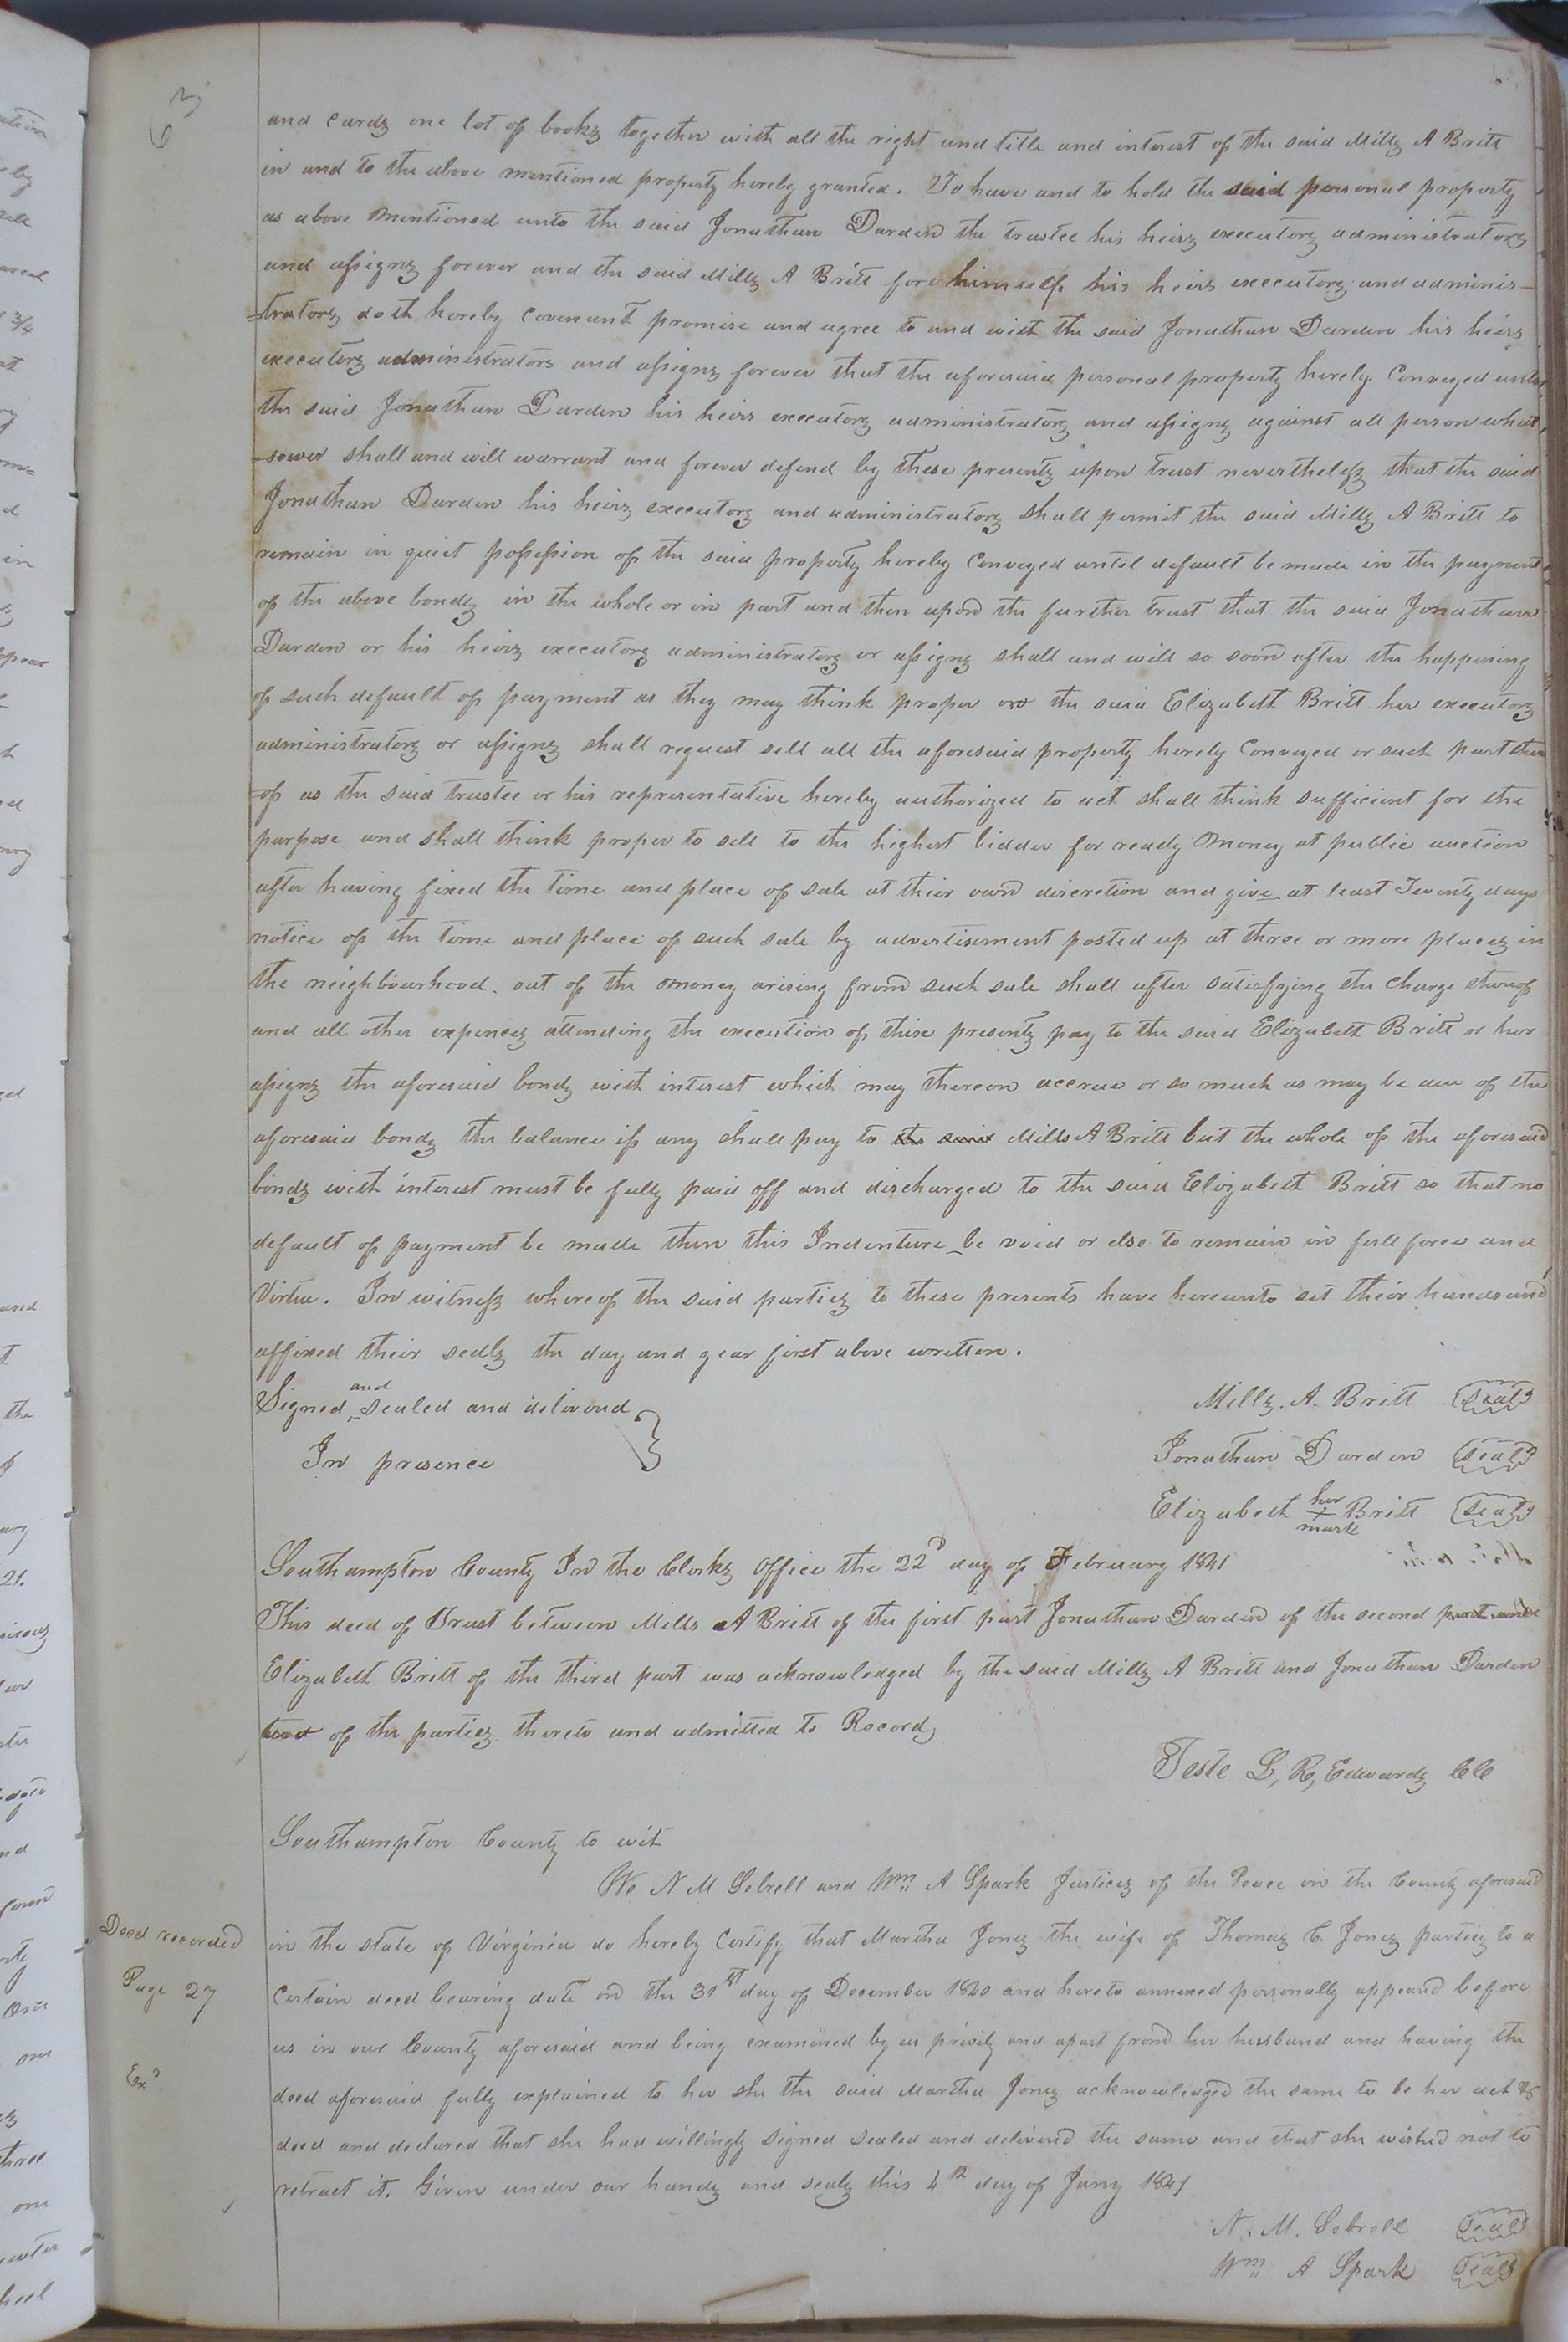 63
and cards one lot of books together with all the right and title and interest of the said Mills A Britt
in and to the above mentioned property hereby granted. To have and to hold the said personal property
as above mentioned unto the said Jonathan Darden the trustee his heirs executors administrators
and assigns forever and the said Mills A Britt for himself his heirs executors and adminis-
-trators doth hereby covenant promise and agree to and with the said Jonathan Darden his heirs
executors administrators and assigns forever that the aforesaid personal property hereby Conveyed unto
the said Jonathan Darden his heirs executors administrators and assigns against all person what
-sower shall and will warrant and forever defend by these presents upon trust nevertheless that the said
Jonathan Darden his heirs executors and administrators shall permit the said Mills A Britt to
remain in quiet possession of the said property hereby Conveyed until default be made in the payment
of the above bonds in the whole or in part and then upon the further trust that the said Jonathan
Darden or his heirs executors administrators or assigns shall and will so soon after the happening
of such default of payment as they may think proper or the said Elizabeth Britt her executors
administrators or assigns shall request sell all the aforesaid property hereby Conveyed or such part there
-of as the said trustee or his representative hereby authorized to act shall think sufficient for the
purpose and shall think proper to sell to the highest bidder for ready money at public auction
after having fixed the time and place of sale at their own discretion and give at least Twenty days
notice of the time and place of such sale by advertisement posted up at three or more places in
the neighbourhood. out of the money arising from such sale shall after satisfying the Charge thereof
and all other expences attending the execution of these presents pay to the said Elizabeth Britt or her
assigns the aforesaid bonds with interest which may thereon accrue or so much as may be due of the
aforesaid bonds the balance if any shall pay to the said Mills A Britt but the whole of the aforesaid
bonds with interest must be fully paid off and discharged to the said Elizabeth Britt so that no
default of payment be made then this Indenture be void or else to remain in full force and
Virtue. In witness whereof the said parties to these presents have hereunto set their hands and
affixed their seals the day and year first above written.
Signed, and sealed and deliverd } Mills. A. Britt (Seal)
In presence Jonathan Darden (Seal)
Elizabeth her + mark Britt (Seal)
Southampton County In the Clerks Office the 22d day of February 1841
This deed of Trust between Mills A Britt of the first part Jonathan Darden of the second part and
Elizabeth Britt of the third part was acknowledged by the said Mills A Britt and Jonathan Darden
two of the parties thereto and admitted to Record,
Teste L, R, Edwards CC
Southampton County to wit
We N M Sebrell and Wm A Spark Justices of the Peace in the County aforesaid
Deed recorded
Page 27
Exd.
in the state of Virginia do hereby Certify that Martha Jones the wife of Thomas C. Jones parties to a
Certain deed bearing date on the 31st day of December 1840 and hereto annexed personally appeard before
us in our County aforesaid and being examined by us privily and apart from her hussband and having the
deed aforesaid fully explained to her she the said Martha Jones acknowledged the same to be her act &
deed and declared that she had willingly signed sealed and deliverd the same and that she wished not to
retract it. Given under our hands and seals this 4th day of Jany 1841
N. M. Sebrell (Seal)
Wm A Spark (Seal)